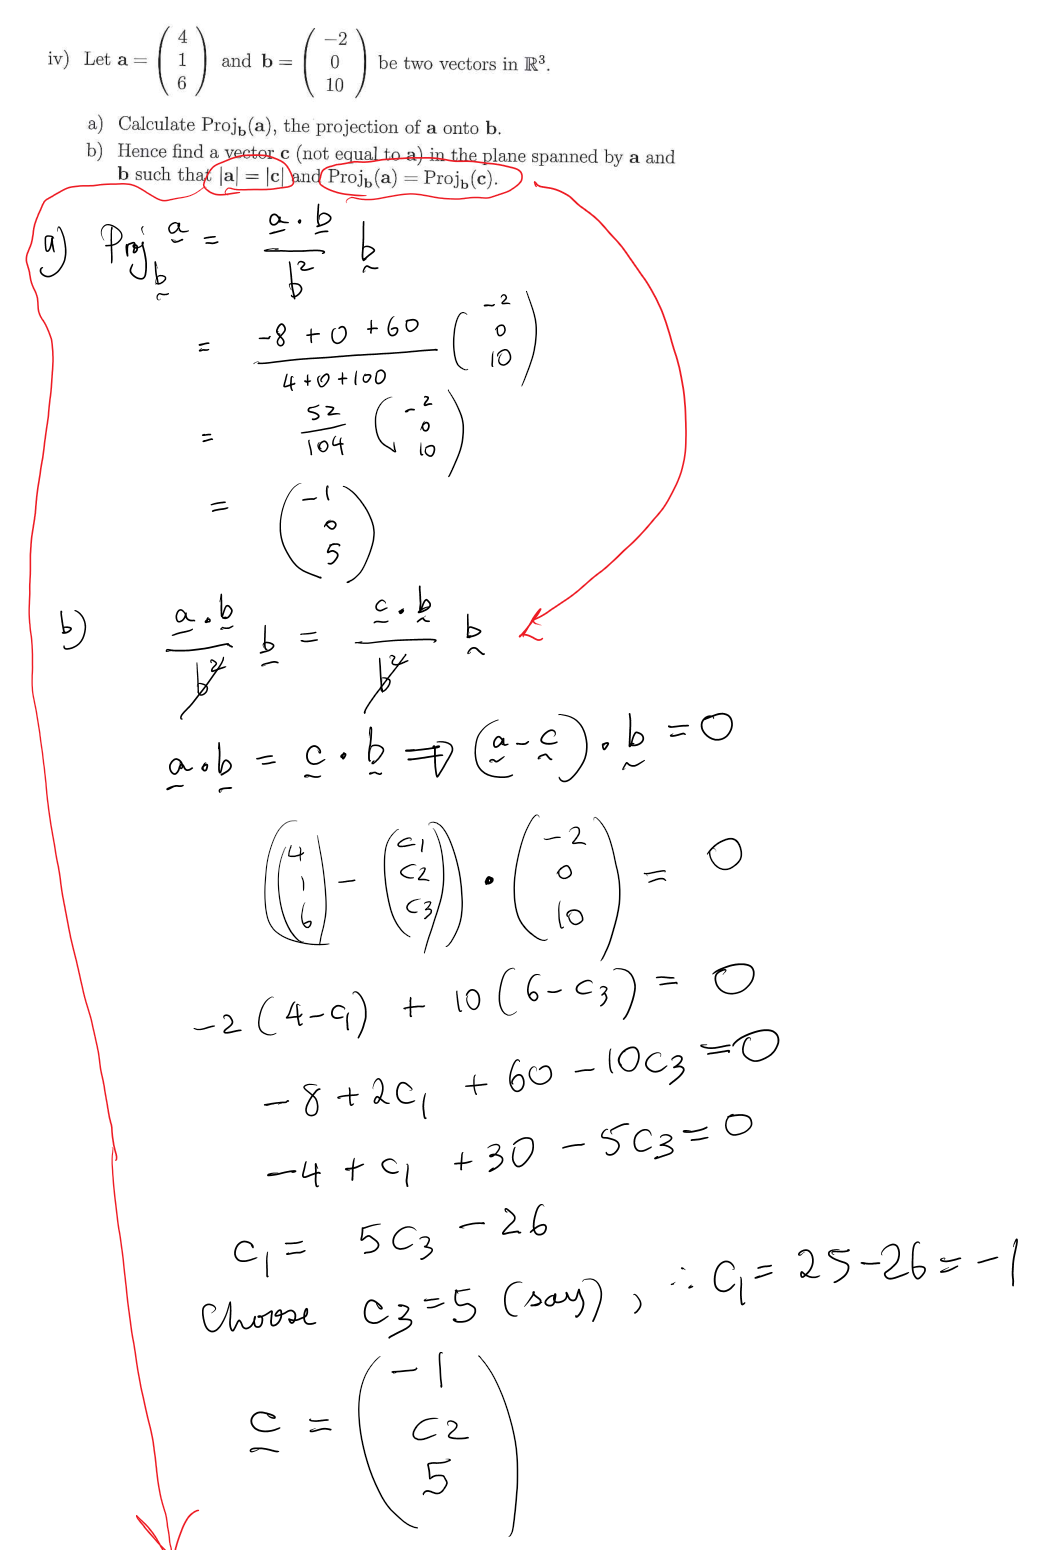 iv) Let a = ( 4 1 6 ) and b = ( −2 0 10 ) be two vectors in ℝ³.
a) Calculate Proj_b(a), the projection of a onto b.
b) Hence find a vector c (not equal to a) in the plane spanned by a and
b such that |a| = |c| and Proj_b(a) = Proj_b(c).
a) Proj_b a = (a · b / b²) b
= (-8 + 0 + 60) / (4 + 0 + 100) ( -2 0 10 )
= 52/104 ( -2 0 10 )
= ( -1 0 5 )
b) (a · b / b²) b = (c · b / b²) b
a · b = c · b ⇒ (a - c) · b = 0
(( 4 1 6 ) - ( c1 c2 c3 )) · ( -2 0 10 ) = 0
-2 (4 - c1) + 10 (6 - c3) = 0
-8 + 2c1 + 60 - 10c3 = 0
-4 + c1 + 30 - 5c3 = 0
c1 = 5c3 - 26
Choose c3 = 5 (say), ∴ c1 = 25 - 26 = -1
c = ( -1 c2 5 )